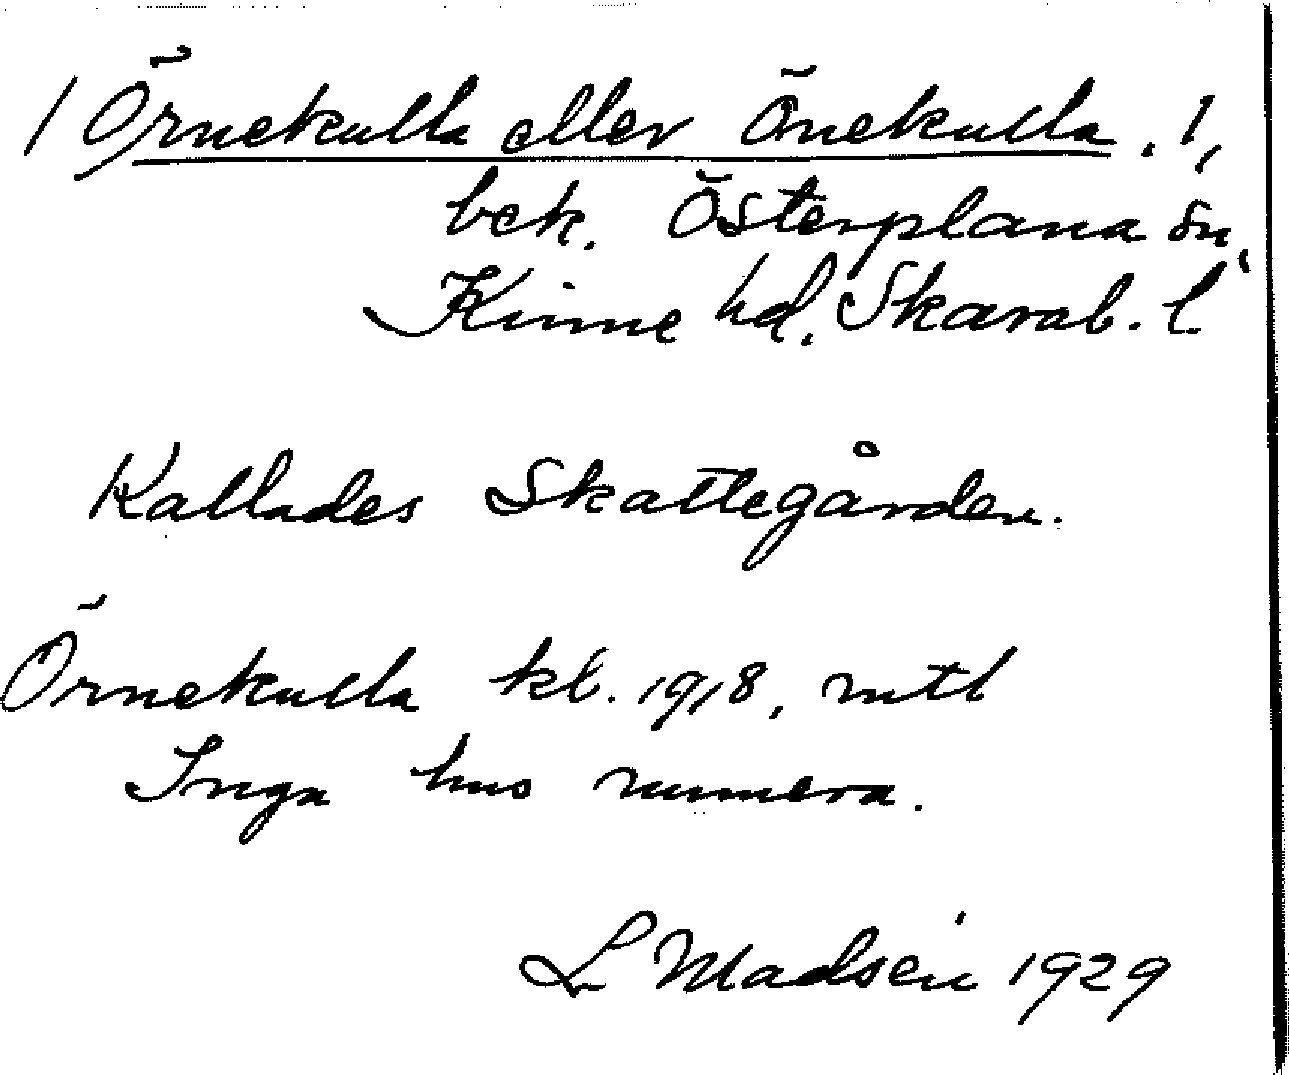 / Örnekulla eller Önekulla. 1,
bek. Österplana sn,
Kinne hd. Skarab. l
Kallades Skattegården.
Örnekulla kl. 1918, mtl
Inga hus numera.
L Madsén 1929